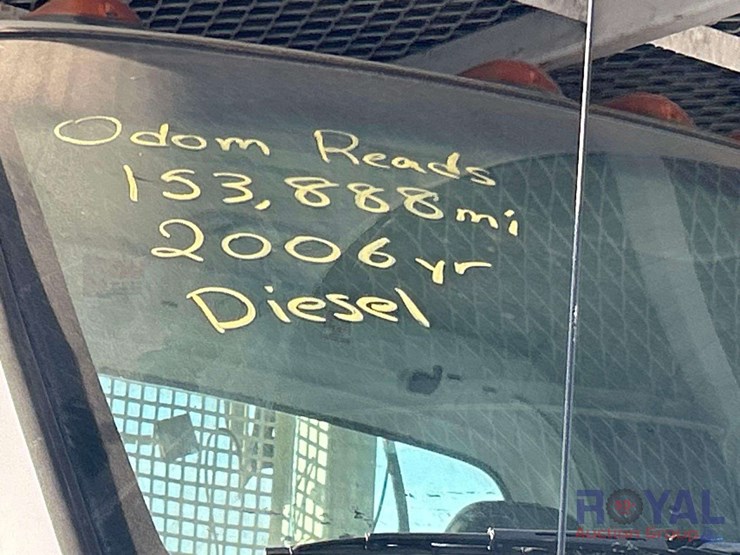 Odom Reads
153,888 mi
2006 yr
Diesel
ROYAL
Auction Group